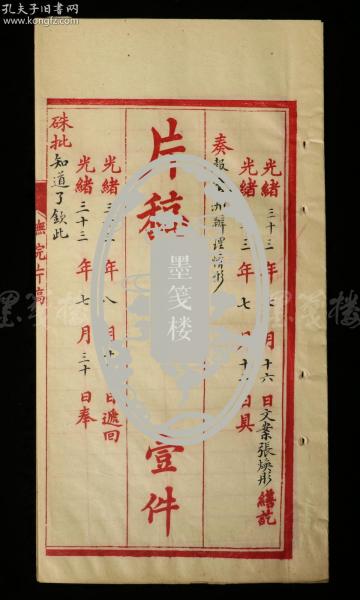 孔夫子旧书网
www.kongfz.com
光緒三十三年月十六日文案張煥彤繕訖
光緒三年七月十日具
奏報辦理情形
片稿壹件
光緒三年八月日遞回
光緒三十三年七月三十日奉
硃批知道了欽此
撫院片稿
墨笺楼